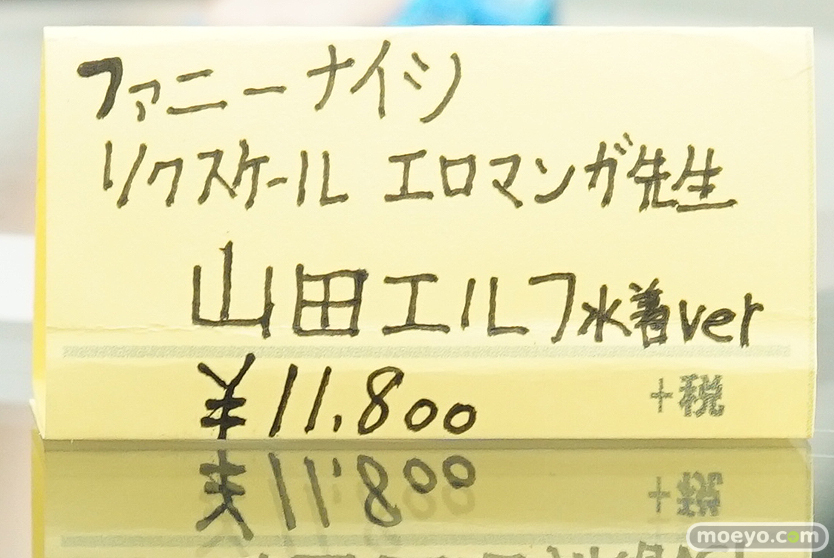 ファニーナイツ
リクスケール エロマンガ先生
山田エルフ水着ver
¥11.800 +税
moeyo.com